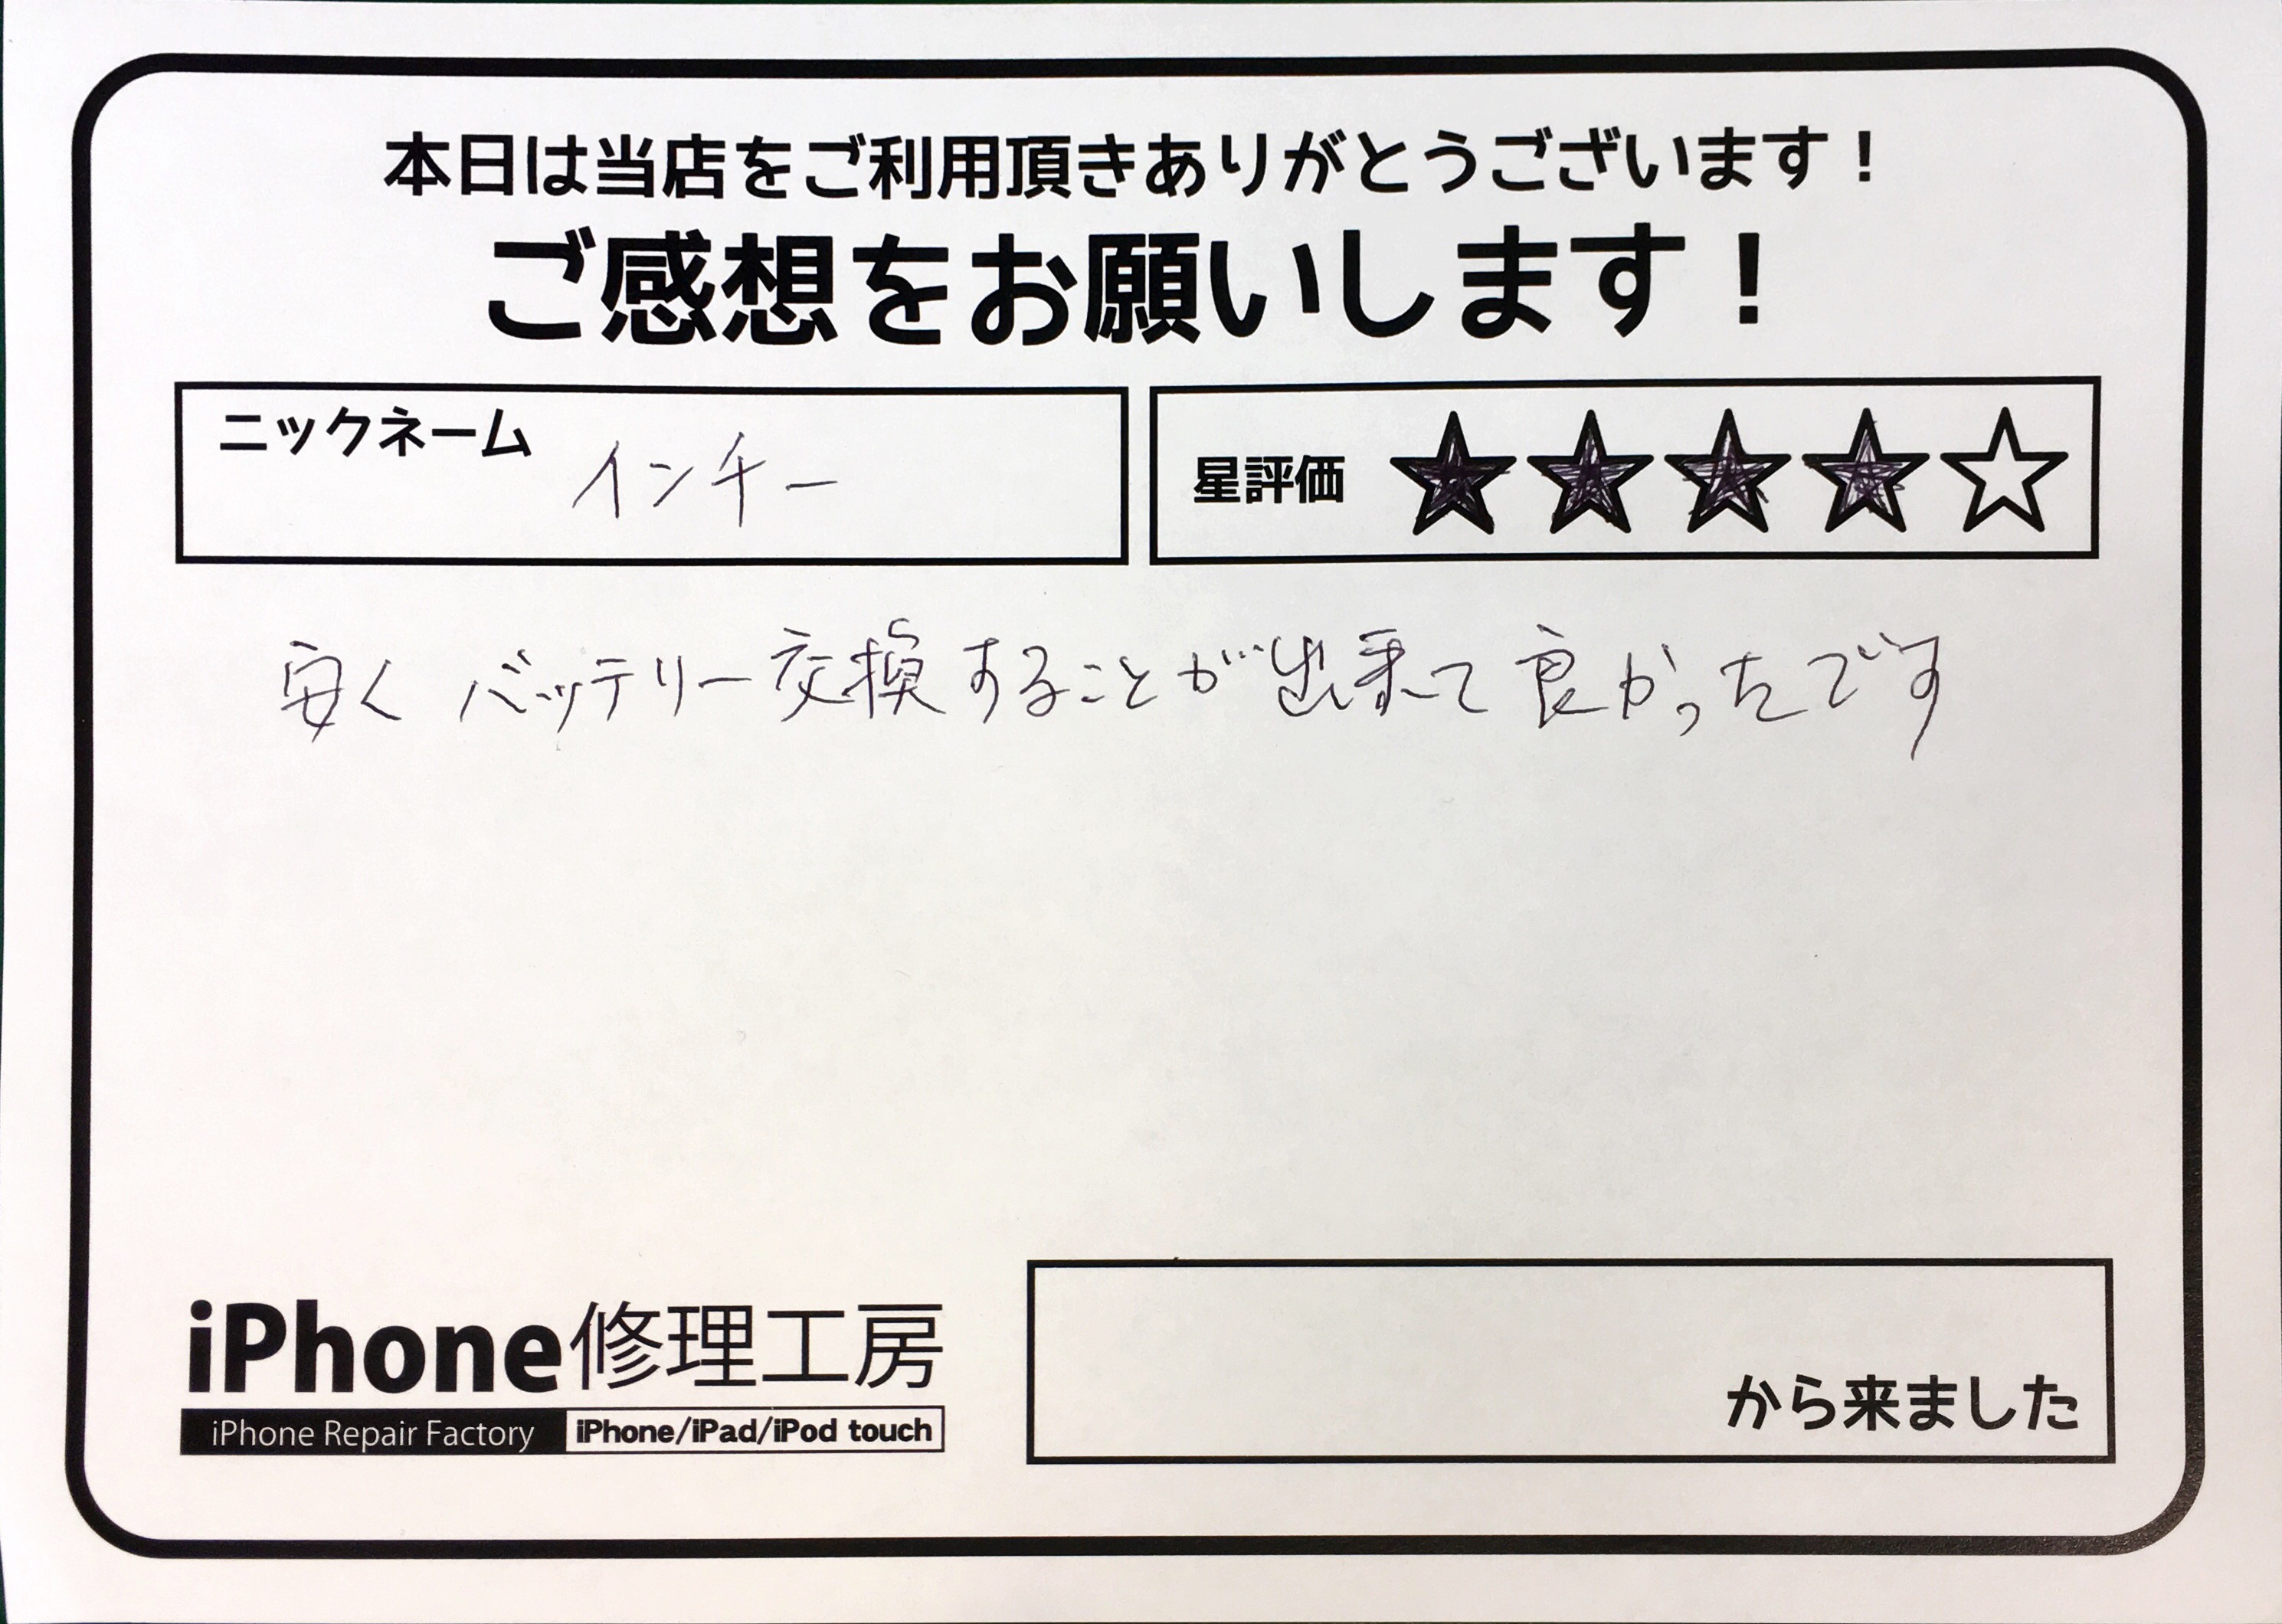 本日は当店をご利用頂きありがとうございます！
ご感想をお願いします！
ニックネーム インチー
星評価 ★★★★☆
安くバッテリー交換することが出来て良かったです
iPhone修理工房
iPhone Repair Factory iPhone/iPad/iPod touch
から来ました